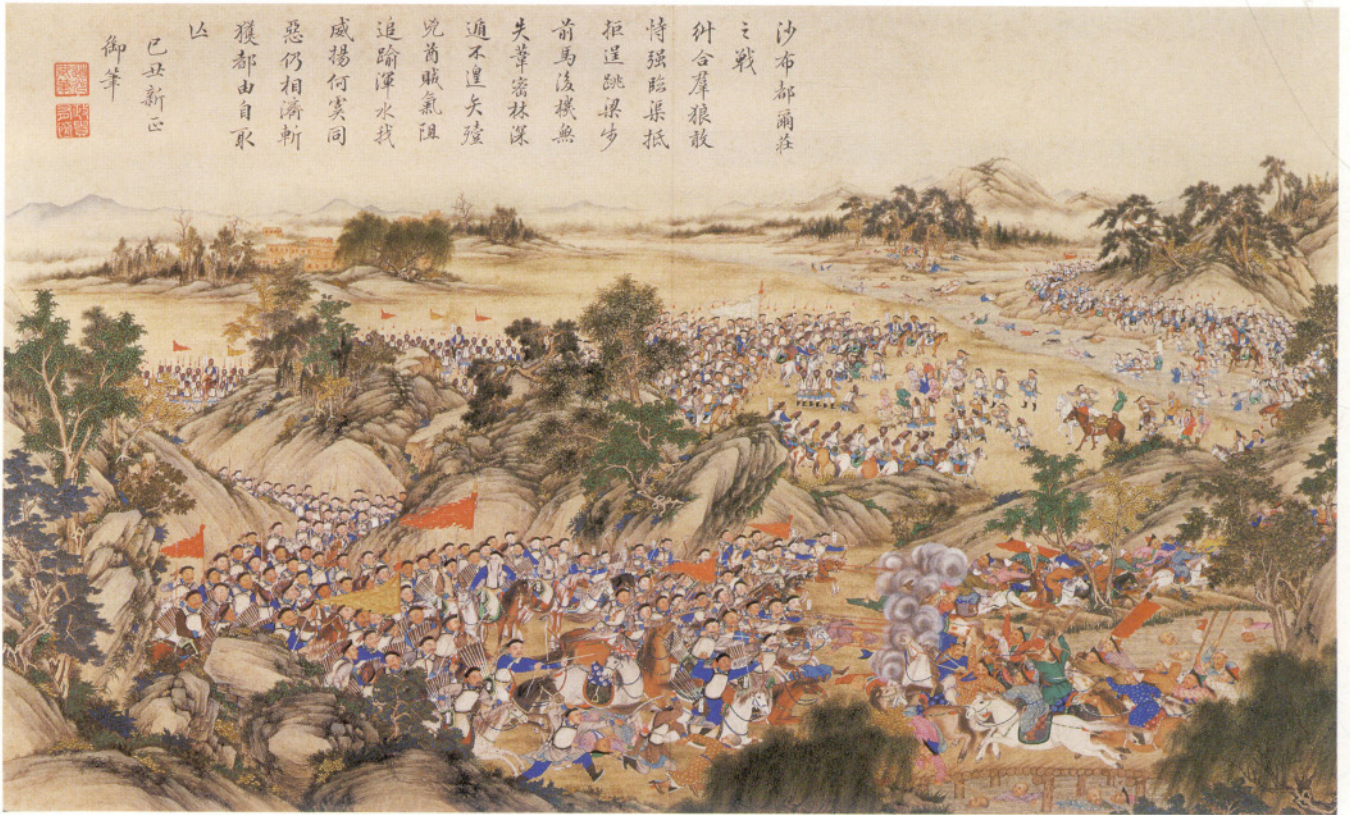 沙布都爾莊
之戰
糾合羣狼敢
恃强臨渠抵
拒逞跳梁步
前馬後機無
失葦密林深
遁不遑矢殪
兇酋賊氣阻
追踰渾水我
威揚何寞同
惡仍相濟斬
獲都由自取
亾
己丑新正
御筆